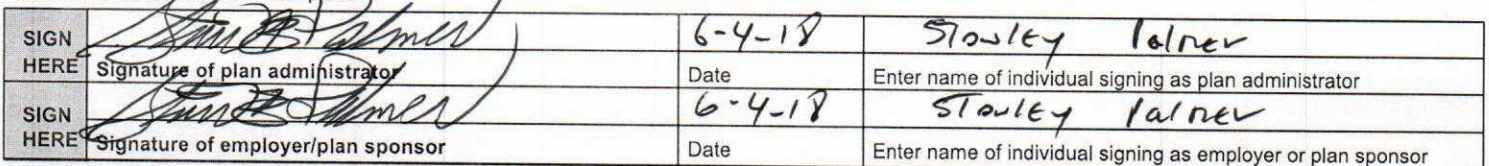 SIGN HERE 6-4-18 Palmer
Signature of plan administrator Date Enter name of individual signing as plan administrator
SIGN HERE 6-4-18 Palmer
Signature of employer/plan sponsor Date Enter name of individual signing as employer or plan sponsor